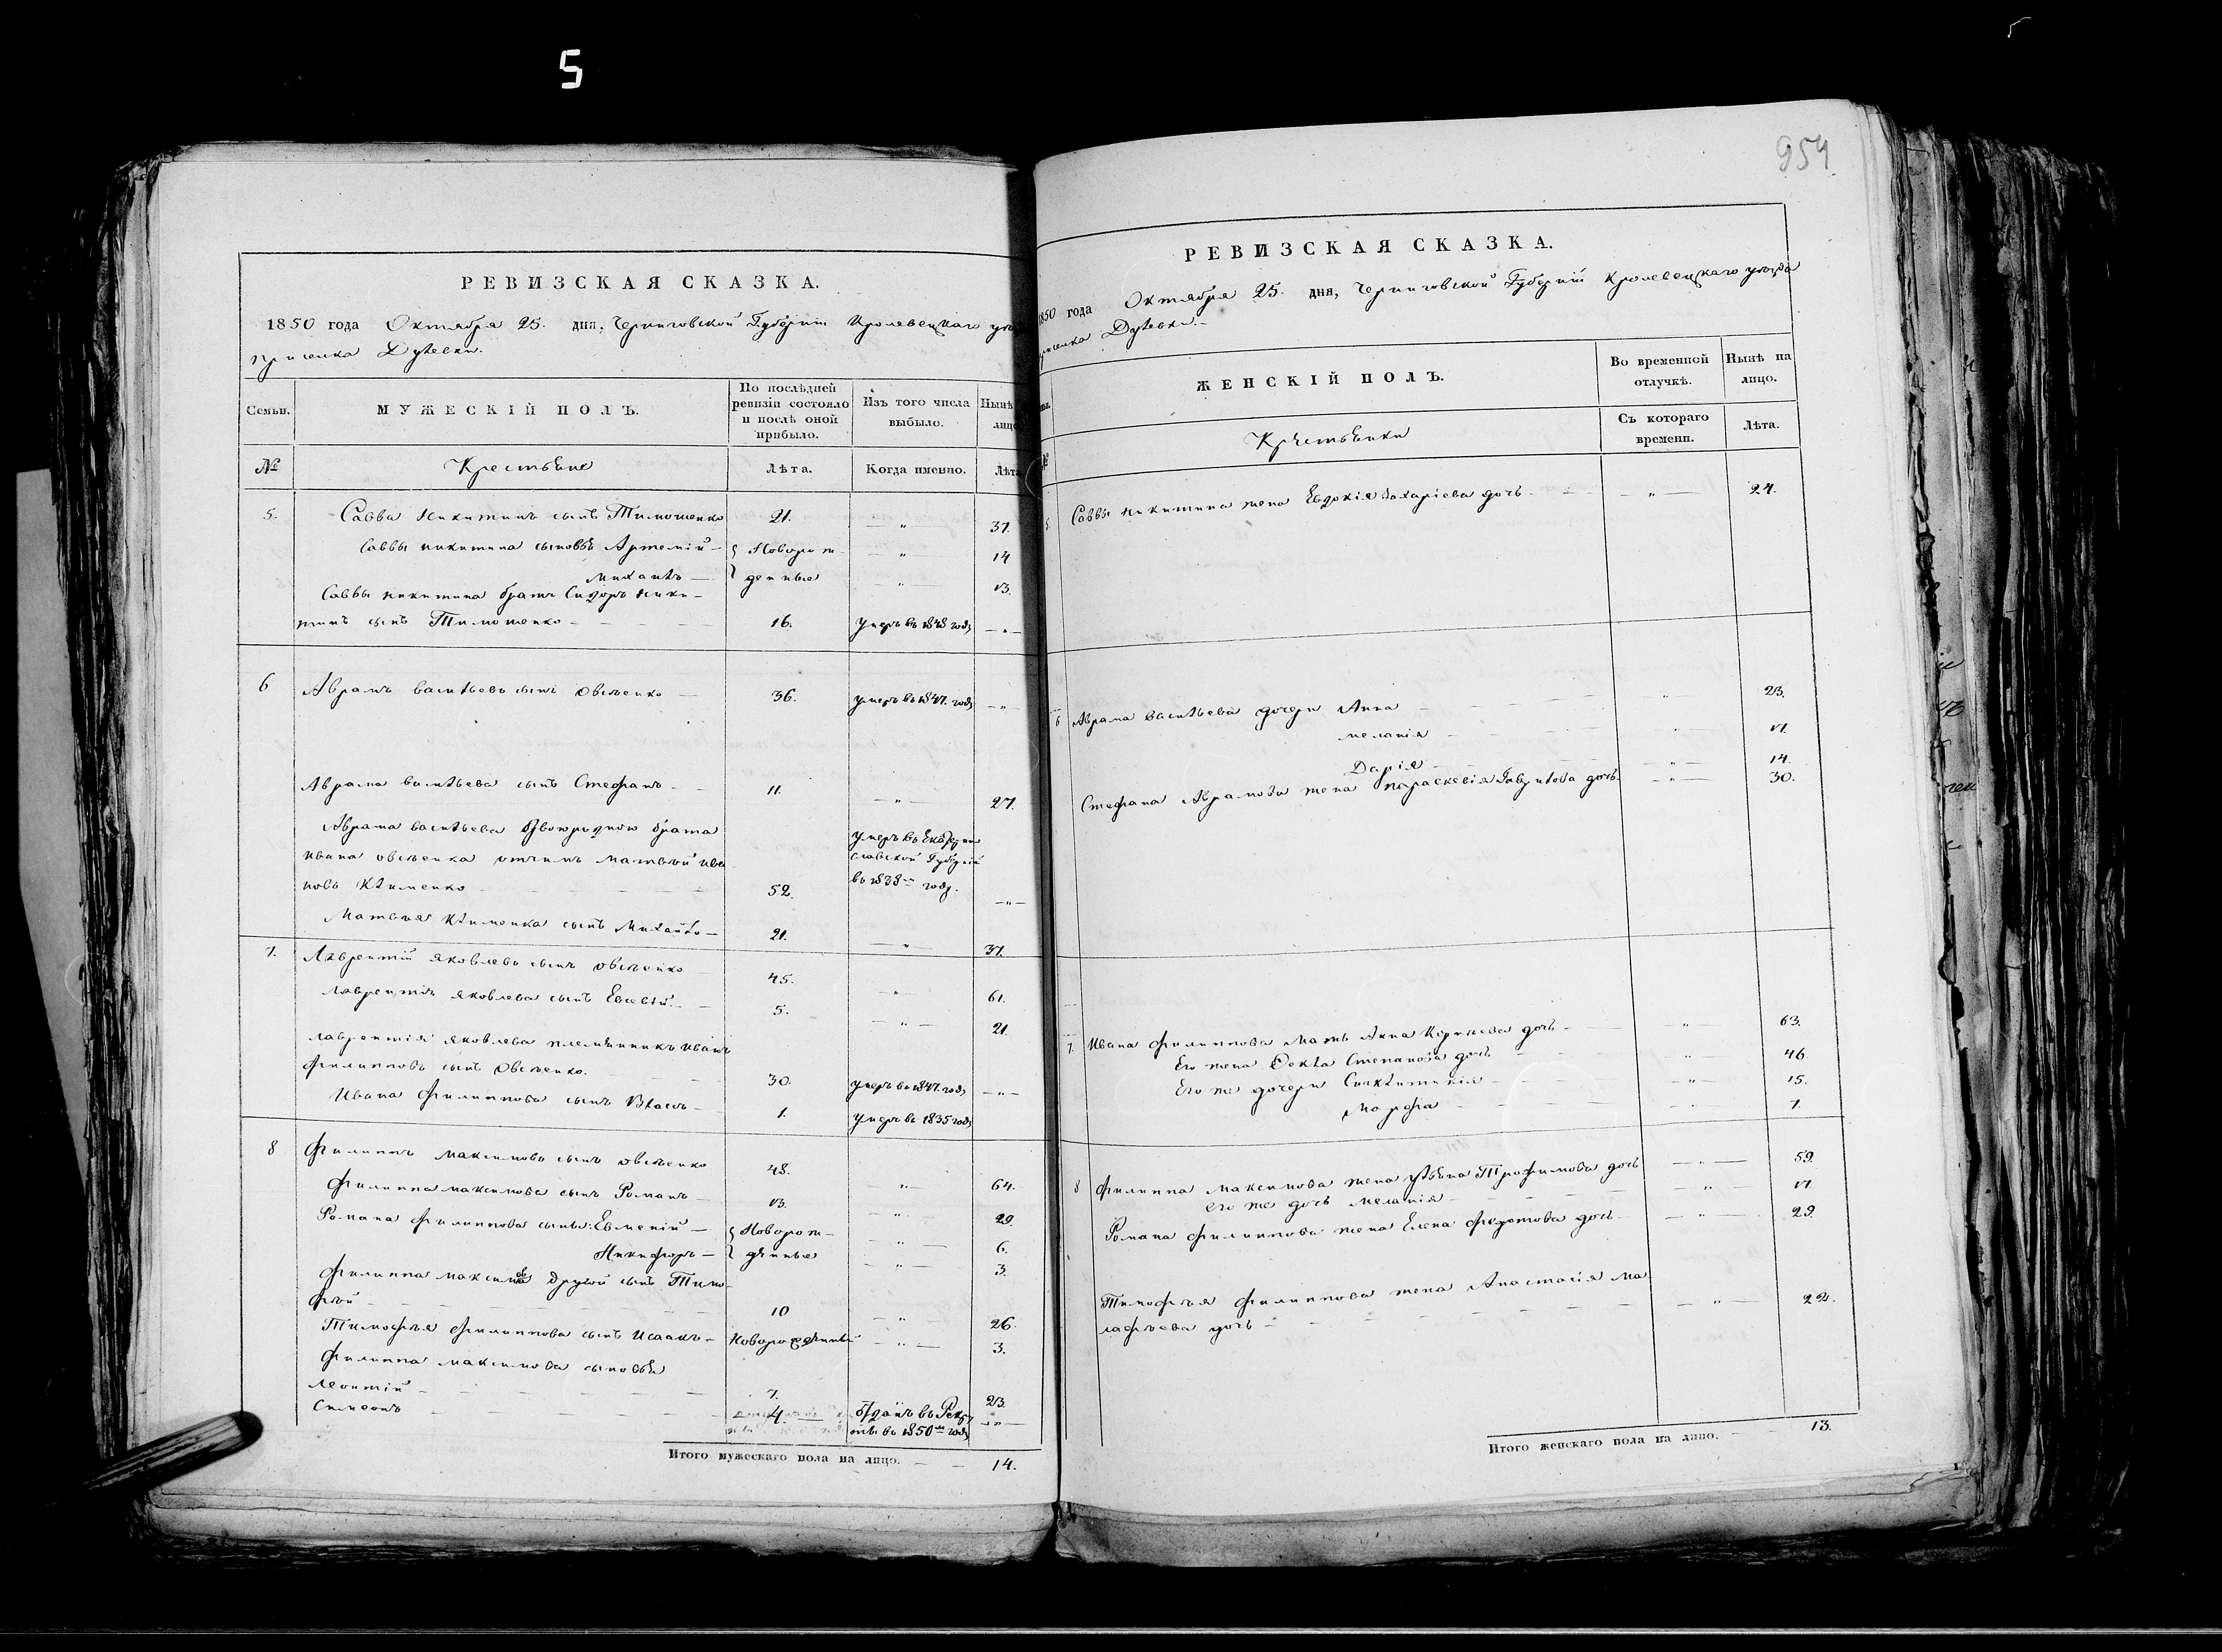 5
954
РЕВИЗСКАЯ СКАЗКА.
1850 года Октября 25. дня, Черниговской Губерніи Кролевецкаго
приселка
Семьи.
МУЖЕСКІЙ ПОЛЪ.
По послѣдней ревизіи состояло и послѣ оной прибыло.
Изъ того числа выбыло.
Нынѣ лицо
№
Крестьяне
Лѣта.
Когда именно.
Лѣта
5. Савва Никитинъ сынъ Тимошенко 21. — „ — 37.
Саввы Никитина сыновья Артемій — Новорож- — „ — 14
Михаилъ — денные — „ — 13.
Саввы Никитина братъ Сидоръ Ники-
тинъ сынъ Тимошенко 16. умеръ въ 1848 году — „ —
6 Аврамъ Васильевъ сынъ Овсѣенко — 36. умеръ въ 1847. году — „ —
Аврама Васильева сынъ Стефанъ — 11. — „ — 27.
Аврама Васильева двоюроднаго брата умеръ въ Екатерино
Ивана Овсѣенка отчимъ Матвѣй Ива- славской Губерніи
новъ Клименко 52. въ 1838 году. — „ —
Матвѣя Клименка сынъ Михайло — 21. — „ — 37.
7. Лаврентій Яковлевъ сынъ Овсѣенко 45. — „ — 61.
Лаврентія Яковлева сынъ Евсевій. — 5. — „ — 21.
Лаврентія Яковлева племянникъ Иванъ
Филипповъ сынъ Овсѣенко. 30. умеръ въ 1847. году — „ —
Ивана Филиппова сынъ Власъ — 1. умеръ въ 1835 году
8 Филиппъ Максимовъ сынъ Овсѣенко 48. — „ — 64.
Филиппа Максимова сынъ Романъ — 13. — „ — 29.
Романа Филиппова сыны: Евмений — Новорож- — „ — 6.
Никифоръ — денные — „ — 3.
Филиппа Максимова другой сынъ Тимо-
фѣй — 10 — „ — 26.
Тимофѣя Филиппова сынъ Исаакъ — Новорожденный — „ — 3.
Филиппа Максимова сыновья
Леонтій — 7. 23.
Симеонъ 4. Отданъ въ Рекру — „ —
ты въ 1850 году
Итого мужескаго пола на лицо. — — 14.
РЕВИЗСКАЯ СКАЗКА.
1850 года Октября 25. дня, Черниговской Губерніи Кролевецкаго уѣзда
ЖЕНСКІЙ ПОЛЪ.
Во временной отлучкѣ.
Нынѣ на лицо.
Крестьянки
Съ котораго времени.
Лѣта.
5. Саввы Никитина жена Евдокія Захаріева дочь — „ — 24.
6 Аврама Васильева дочери Анна — „ — 23.
Меланія — „ — 17.
Дарія — „ — 14.
Стефана Аврамова жена Параскевія Гаврилова дочь. — „ — 30.
7. Ивана Филиппова мать Анна Корнеева дочь — „ — 63.
Его жена Ѳекла Степанова дочь „ 46.
Его же дочери Синклитикія — „ — 15.
Марфа — 7.
8 Филиппа Максимова жена Ульяна Трофимова дочь — „ — 59.
его же дочь Меланія — „ 17.
Романа Филиппова жена Елена Федотова дочь — „ — 29.
Тимофѣя Филиппова жена Анастасія Ма-
лафѣева дочь — — „ — 22.
Итого женскаго пола на лицо. — — 13.